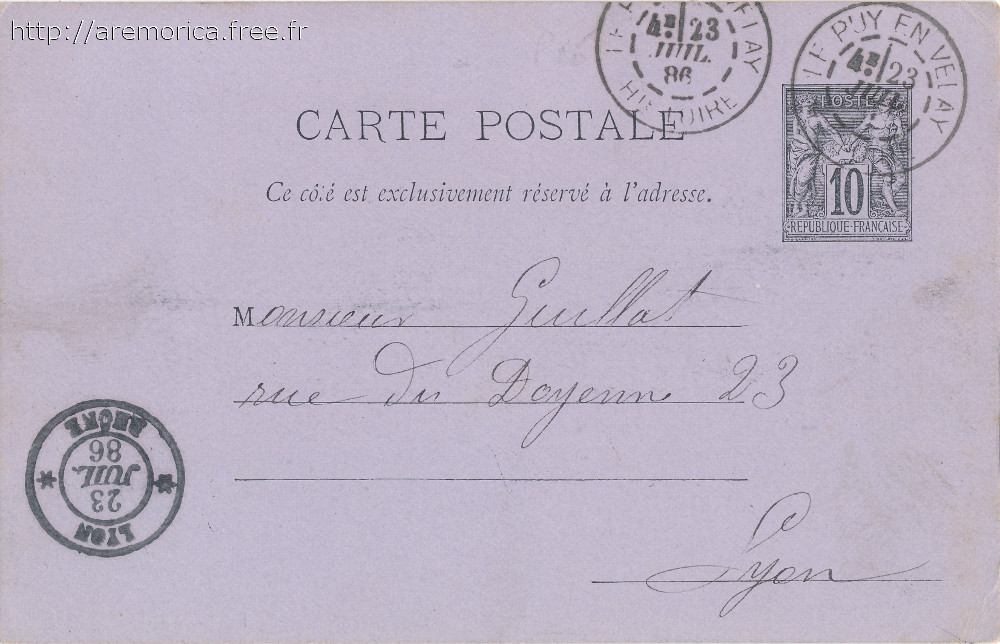 http://aremorica.free.fr
LE PUY EN VELAY
4E 23
JUIL.
86
HTE LOIRE
LE PUY EN VELAY
4E 23
JUIL.
POSTE
10
REPUBLIQUE FRANÇAISE
CARTE POSTALE
Ce côté est exclusivement réservé à l'adresse.
Monsieur Guillot
rue du Doyenné 23
Lyon
LYON
23
JUIL.
86
RHÔNE